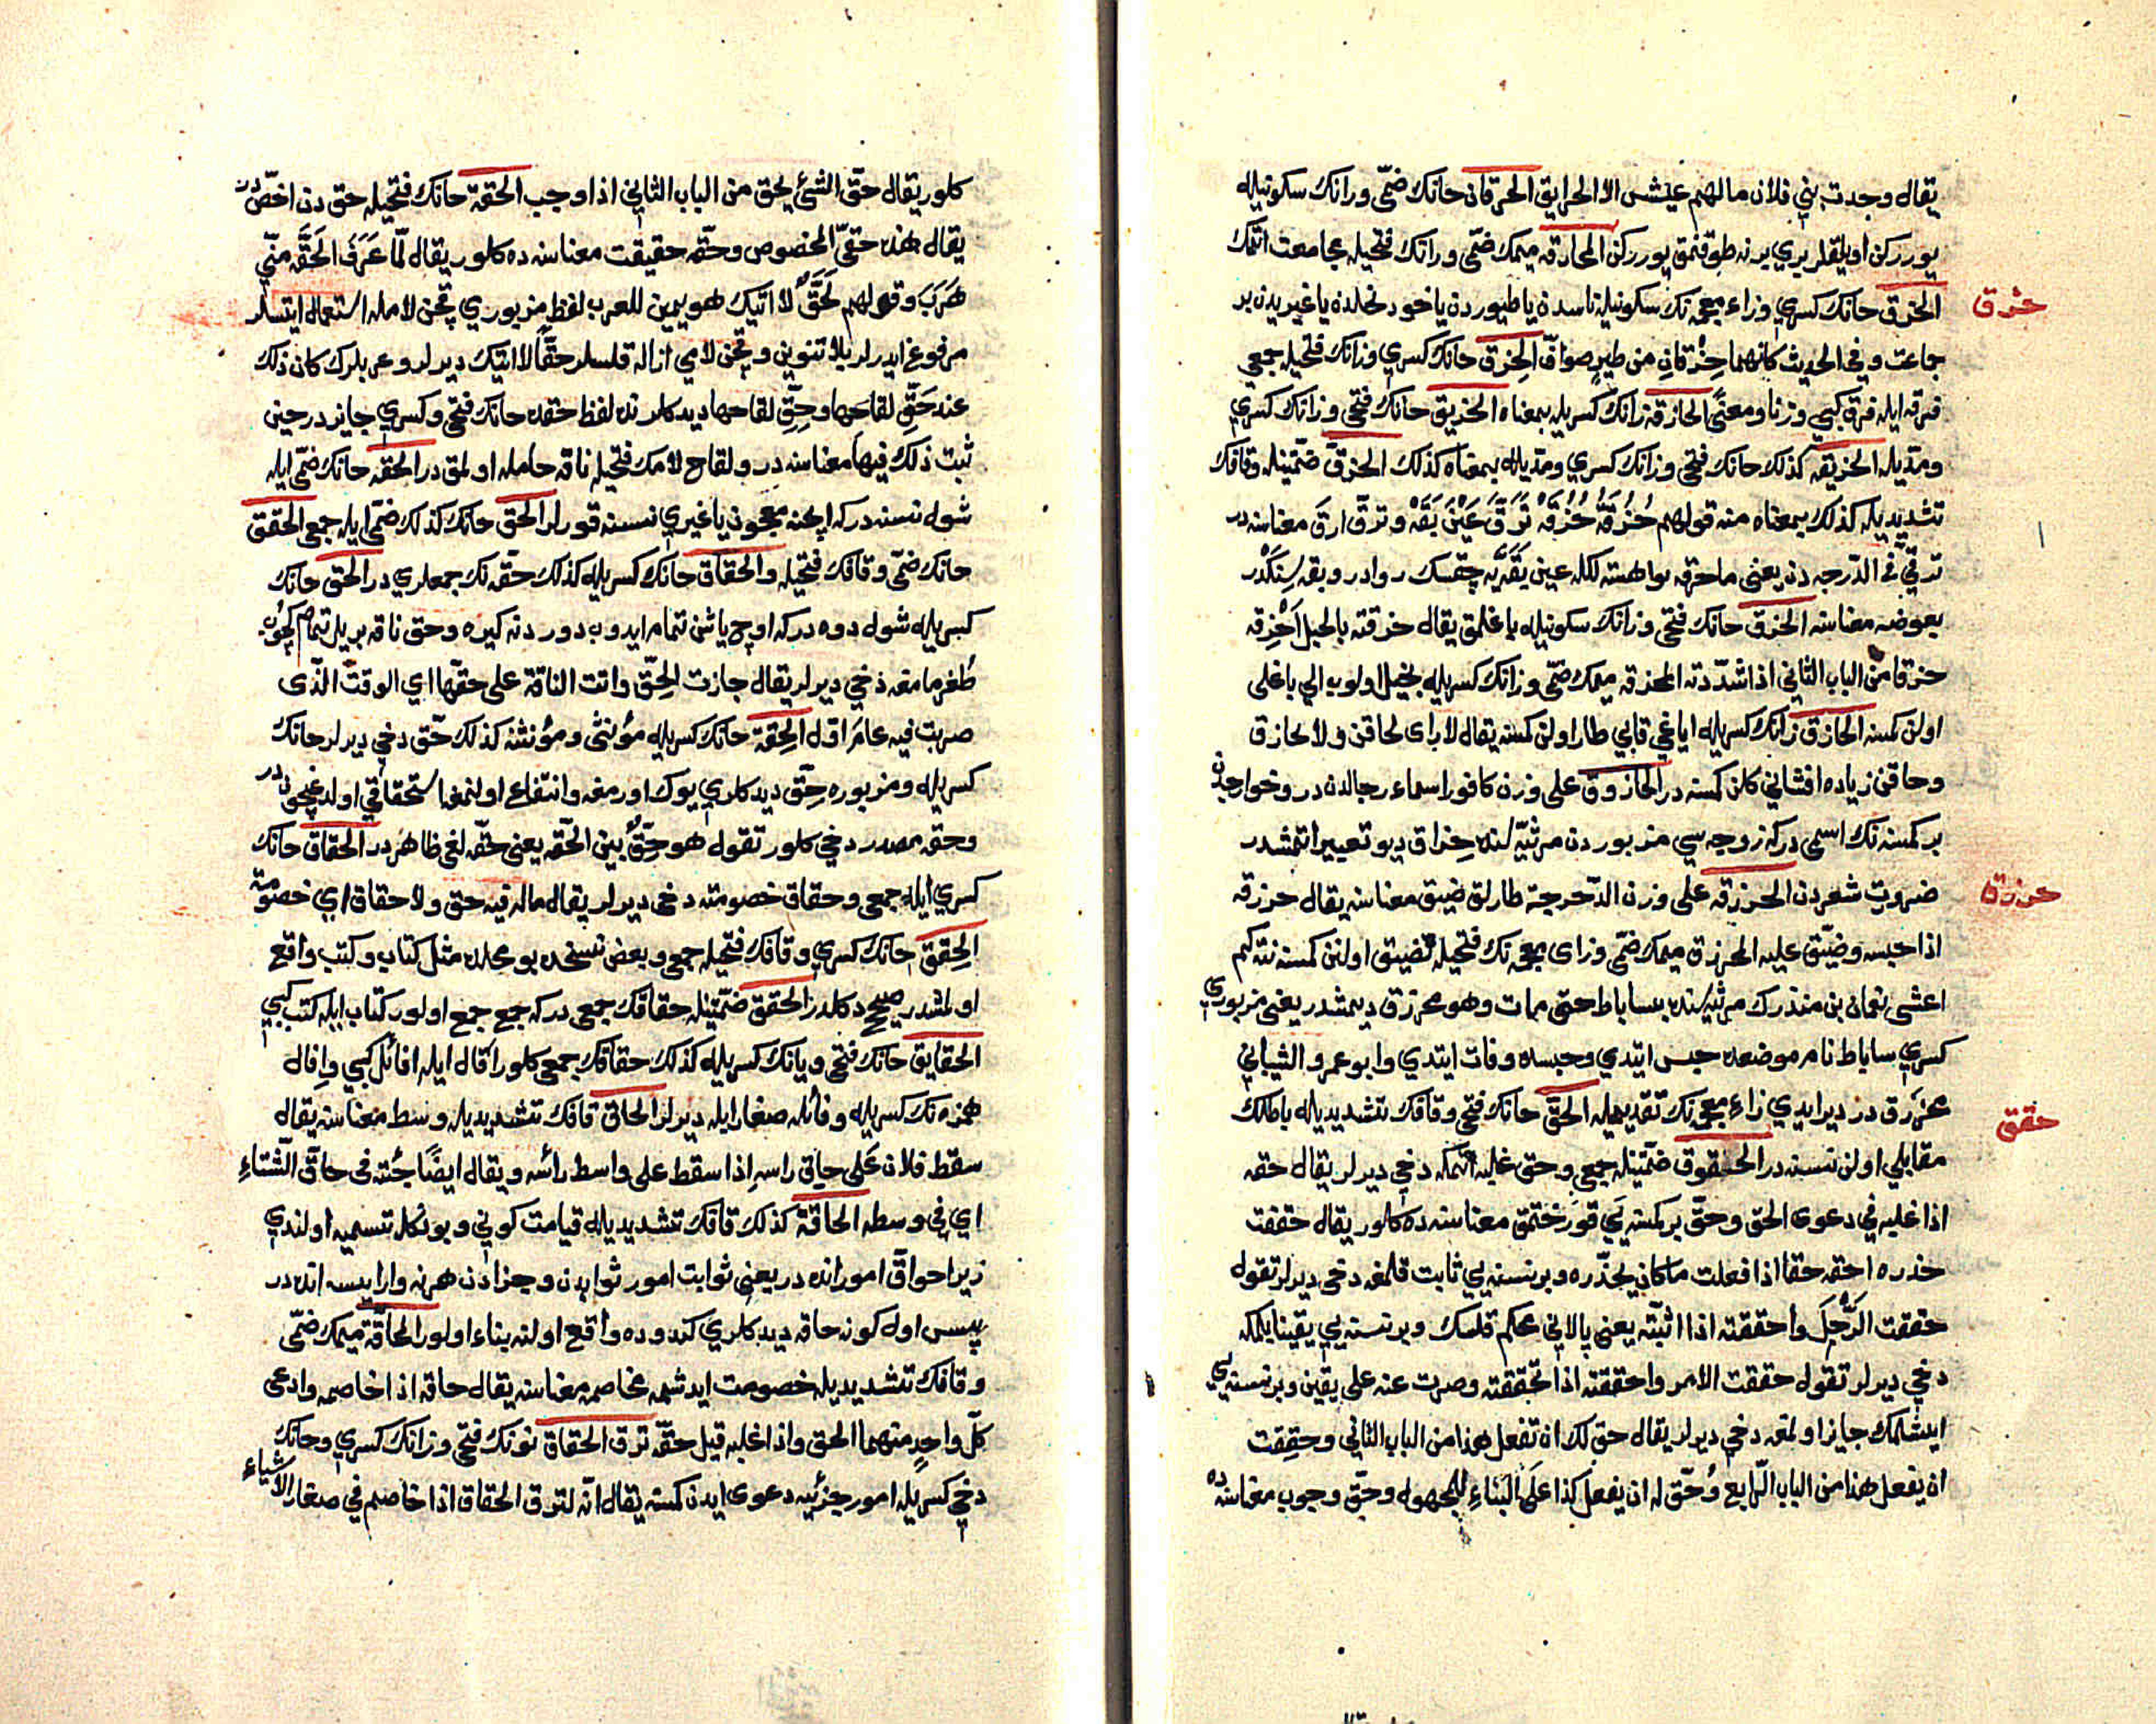 يقال وجدت بني فلان مالهم عيش الا الحرايق الحرقان حانك ضمّى ورانك سكونيله
يوررکن اويلقلر بري برنه طوقنمق يوررکن المحارقه ميمك ضمّى ورانك فتحيله مجامعت اتمك
حزق
الحزق حانك كسري وزاء معجمه نك سكونيله ناسدن يا طيوردن ياخود نخلدن ياغيريدن بر
جماعت وفي الحديث كانهما حِزْقانِ من طيرٍ صوافّ الحِزق حانك كسري وزانك فتحيله جمعى
فرقه ايله فرق كبى وزنا ومعنًى الحازقه زانك كسريله بمعناه الحزيق حانك فتحى وزانك كسري
ومدّيله الحزيقه كذلك حانك فتحى وزانك كسري ومدّيله بمعناه كذلك الحزقّ ضمّتينله وقافك
تشديديله كذلك بمعناه منه قولهم حُزُقَّهْ حُزُقَّهْ تَرَقَّ عَيْنَ بَقَّهْ وترقّ ارق معناسنه در
ترقّي في الدّرجه دن يعنى
بعوضه معناسنه الحزق حانك فتحى وزانك سكونيله باغلمق يقال حزقته بالحبل اَحْزِقه
حزقا من الباب الثاني اذا شدّدته المحزقه ميمك ضمّى وزانك كسريله بخيل اولوب الي باغلى
اولن كمسنه الحازق زانك كسريله اياغي قابي طار اولن كمسنه يقال لا راى لحاقن ولا لحازق
وحاقن زياده افشاني كلن كمسنه در الحازوق على وزن كافور اسماء رجالدن در وخوارجدن
بر كمسنه نك اسمى در كه زوجه سي مزبوردن مرثيّه لنده حِزاق ديو تعبير اتمشدر
حزرق
ضرورت شعردن الحزرقه على وزن الدّحرجة طارلق ضيق معناسنه يقال حزرقه
اذا حبسه وضيّق عليه المحزرق ميمك ضمّى وزاى معجمه نك فتحيله تضييق اولنن كمسنه نته كم
اعشى نعمان بن منذرك مرثيه سنده بساباط حتى مات وهو محزرق ديمشدر يعنى مزبوري
كسري ساباط نام موضعده حبس ايتدي وحبسده وفات ايتدي وابو عمرو الشيباني
حقق
محزرق در دير ايدي زاء معجمه نك تقديميله الحقّ حانك فتحى وقافك تشديديله باطلك
مقابلي اولن نسنه در الحقوق ضمّتينله جمعى وحق غلبه اتمكه دخي ديرلر يقال حقه
اذا غلبه في دعوى الحق وحقّ بر كمسنه يي قورختمق معناسنه ده كلور يقال حققت
حذره احقه حقا اذا فعلت ما كان يحذره وبر نسنه يي ثابت قلمغه دخي ديرلر تقول
حققت الرّجل وأحققته اذا اثبتّه يعنى پالاني محكم قلمك وبر نسنه يي يقينا بلمكه
دخي ديرلر تقول حققت الامر واحققته اذا تحققته وصرت عنه على يقين وبر نسنه يي
ايشلمك جايز اولمغه دخي ديرلر يقال حق لك ان تفعل هذا من الباب الثاني وحقِقت
ان يفعل هذا من الباب الرّابع وحُقّ له ان يفعل كذا على البناءِ للمجهول وحقّ وجوب معناسنه ده
كلور يقال حقّ الشئ يحق من الباب الثاني اذا وجب الحقة حانك فتحيله حق دن اخصّ در
يقال هذه حقتي المخصوص وحقّه حقيقت معناسنه ده كلور يقال لمّا عَرَفَ الحَقَّه منّي
هَرَبَ وقولهم لَحَقُّ لا اتيك هو يمين للعرب لفظ مزبوري قچن لامله استعمال ايتسلر
مرفوع ايدرلر بلا تنوين وقچن لامي ازاله قلسلر حقّاً لا اتيك ديرلر وعربلرك كان ذلك
عند حَقِّ لقاحها وحِقِّ لقاحها ديدكلرنده لفظ حقده حانك فتحى وكسري جايزدر حين
ثبت ذلك فيها معناسنه در ولقاح لامك فتحيله ناقه حامله اولمق در الحقّه حانك ضمّى ايله
شول نسنه در كه ايچنه معجون ياغيري نسنه قورلر الحقّ حانك كذلك ضمّى ايله جمعى الحقق
حانك ضمّى وقافك فتحيله والحقاق حانك كسريله كذلك حقّه نك جمعلري در الحقّ حانك
كسريله شول دوه در كه اوچ ياشن تمام ايدوب دوردنه كيره وحق ناقه بريل تمام كچوب
طغرمامغه دخي ديرلر يقال جازت الحِقّ واتت الناقة على حقّها اي الوقت الّذى
ضربت فيه عام اوّل الحِقة حانك كسريله مؤنثى ومؤنثنه كذلك حقّ دخي ديرلر حانك
كسريله ومزبوره حِقّ ديدكلري يوك اورمغه وانتفاع اولنمغه استحقاقي اولدغيچون در
وحقه مصدر دخي كلور تقول هو حِقّ بيّن الحقّه يعنى حقّه لغى ظاهردر الحقاق حانك
كسري ايله جمعى وحقاق خصومته دخى ديرلر يقال ماله فيه حق ولا حقاق اي خصومة
الحِقق حانك كسري وقافك فتحيله جمعى وبعض نسخده بو محلده مثل كتاب وكتب واقع
اولمشدر صحيح دكلدر الحقق ضمّتينله حقاقك جمعى در كه جمع جمع اولور كتاب ايله كتب كبي
الحقايق حانك فتحى ويانك كسريله كذلك حقاقك جمعى كلور اِفال ايله افائل كبي واِفال
همزه نك كسريله وفائله صغار ابله ديرلر الحاقّ قافك تشديديله وسط معناسنه يقال
سقط فلان عَلى حاقّ راسِهِ اذا سقط على واسط رائسه ويقال ايضًا جُئته فى حاقّ الشّتاءِ
اي في وسطه الحاقة كذلك قافك تشديديله قيامت كوني وبونكله تسميه اولندي
زيرا حواقّ امور انده در يعني ثوابت امور ثوابدن وجزادن هر نه وار ايسه انده در
پس اول كونه حاقه ديدكلري كندوده واقع اولنه بناء اولور المحاقّة ميمك ضمّى
وقافك تشديديله خصومت ايدشمه مخاصمه معناسنه يقال حاقه اذا خاصمه وادعى
كلّ واحدٍ منهما الحق واذا غلبه قيل حقّه نزق الحقاق نونك فتحى وزانك كسري وحانك
دخي كسريله امور جزئيه ده دعوى ايدن كمسنه يقال انّه لنزق الحقاق اذا خاصم في صغار الاشياء